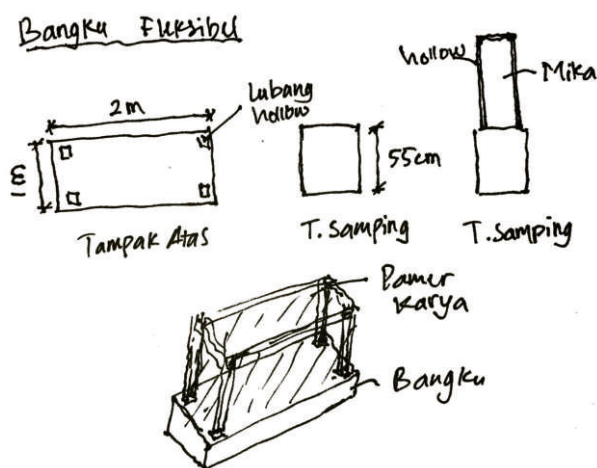 Bangku Fleksibel
2m
Lubang
hollow
1m
Tampak Atas
55cm
T. Samping
hollow
Mika
T. Samping
Pamer
Karya
Bangku